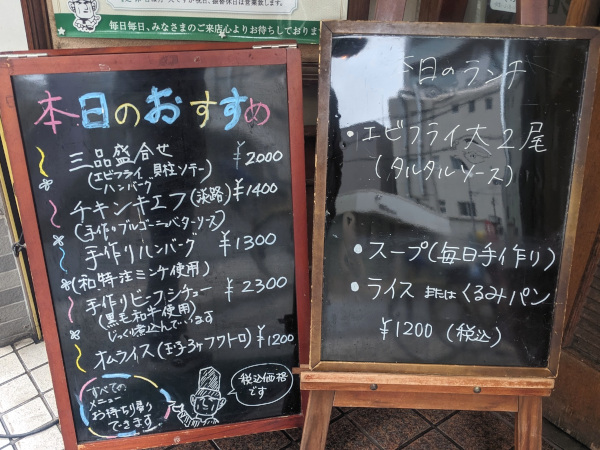 毎日毎日、みなさまのご来店心よりお待ちしております
本日のおすすめ
三品盛合せ ¥2000
(エビフライ 貝柱ソテー
ハンバーグ)
チキンキエフ(淡路) ¥1400
(手作りブルゴーニュバターソース)
手作りハンバーグ ¥1300
(和特注ミンチ使用)
手作りビーフシチュー ¥2300
(黒毛和牛使用)
じっくり煮込んでいます
オムライス(玉子3ヶフワトロ) ¥1200
すべての
メニュー
お持ち帰り
できます
税込価格
です
本日のランチ
・エビフライ大2尾
(タルタルソース)
・スープ(毎日手作り)
・ライス またはくるみパン
¥1200 (税込)